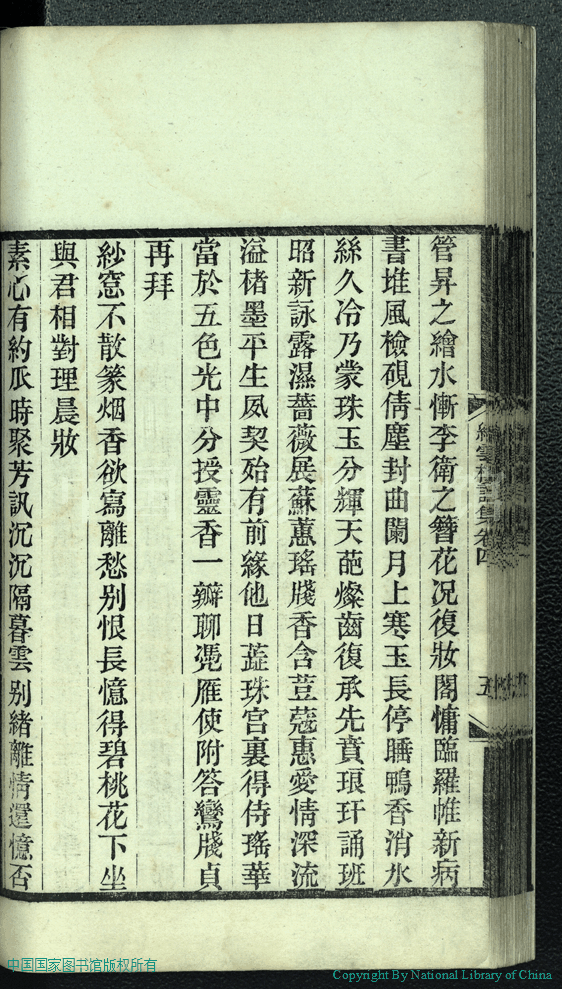 管昇之繪水慚李衛之簪花况復妝閣慵臨羅帷新病
書堆風檢硯倩塵封曲闌月上寒玉長停睡鴨香消氷
絲久冷乃蒙珠玉分輝天葩燦齒復承先賁琅玕誦班
昭新詠露濕薔薇展蘇蕙瑤牋香含荳蔻惠愛情深流
溢楮墨平生夙契殆有前緣他日蕋珠宮裏得侍瑤華
當於五色光中分授靈香一瓣聊凴雁使附答鸞牋貞
再拜
紗窓不散篆烟香欲寫離愁别恨長憶得碧桃花下坐
與君相對理晨妝
素心有約瓜時聚芳訊沉沉隔暮雲别緒離情還憶否
集卷四
五
中国国家图书馆版权所有
Copyright By National Library of China